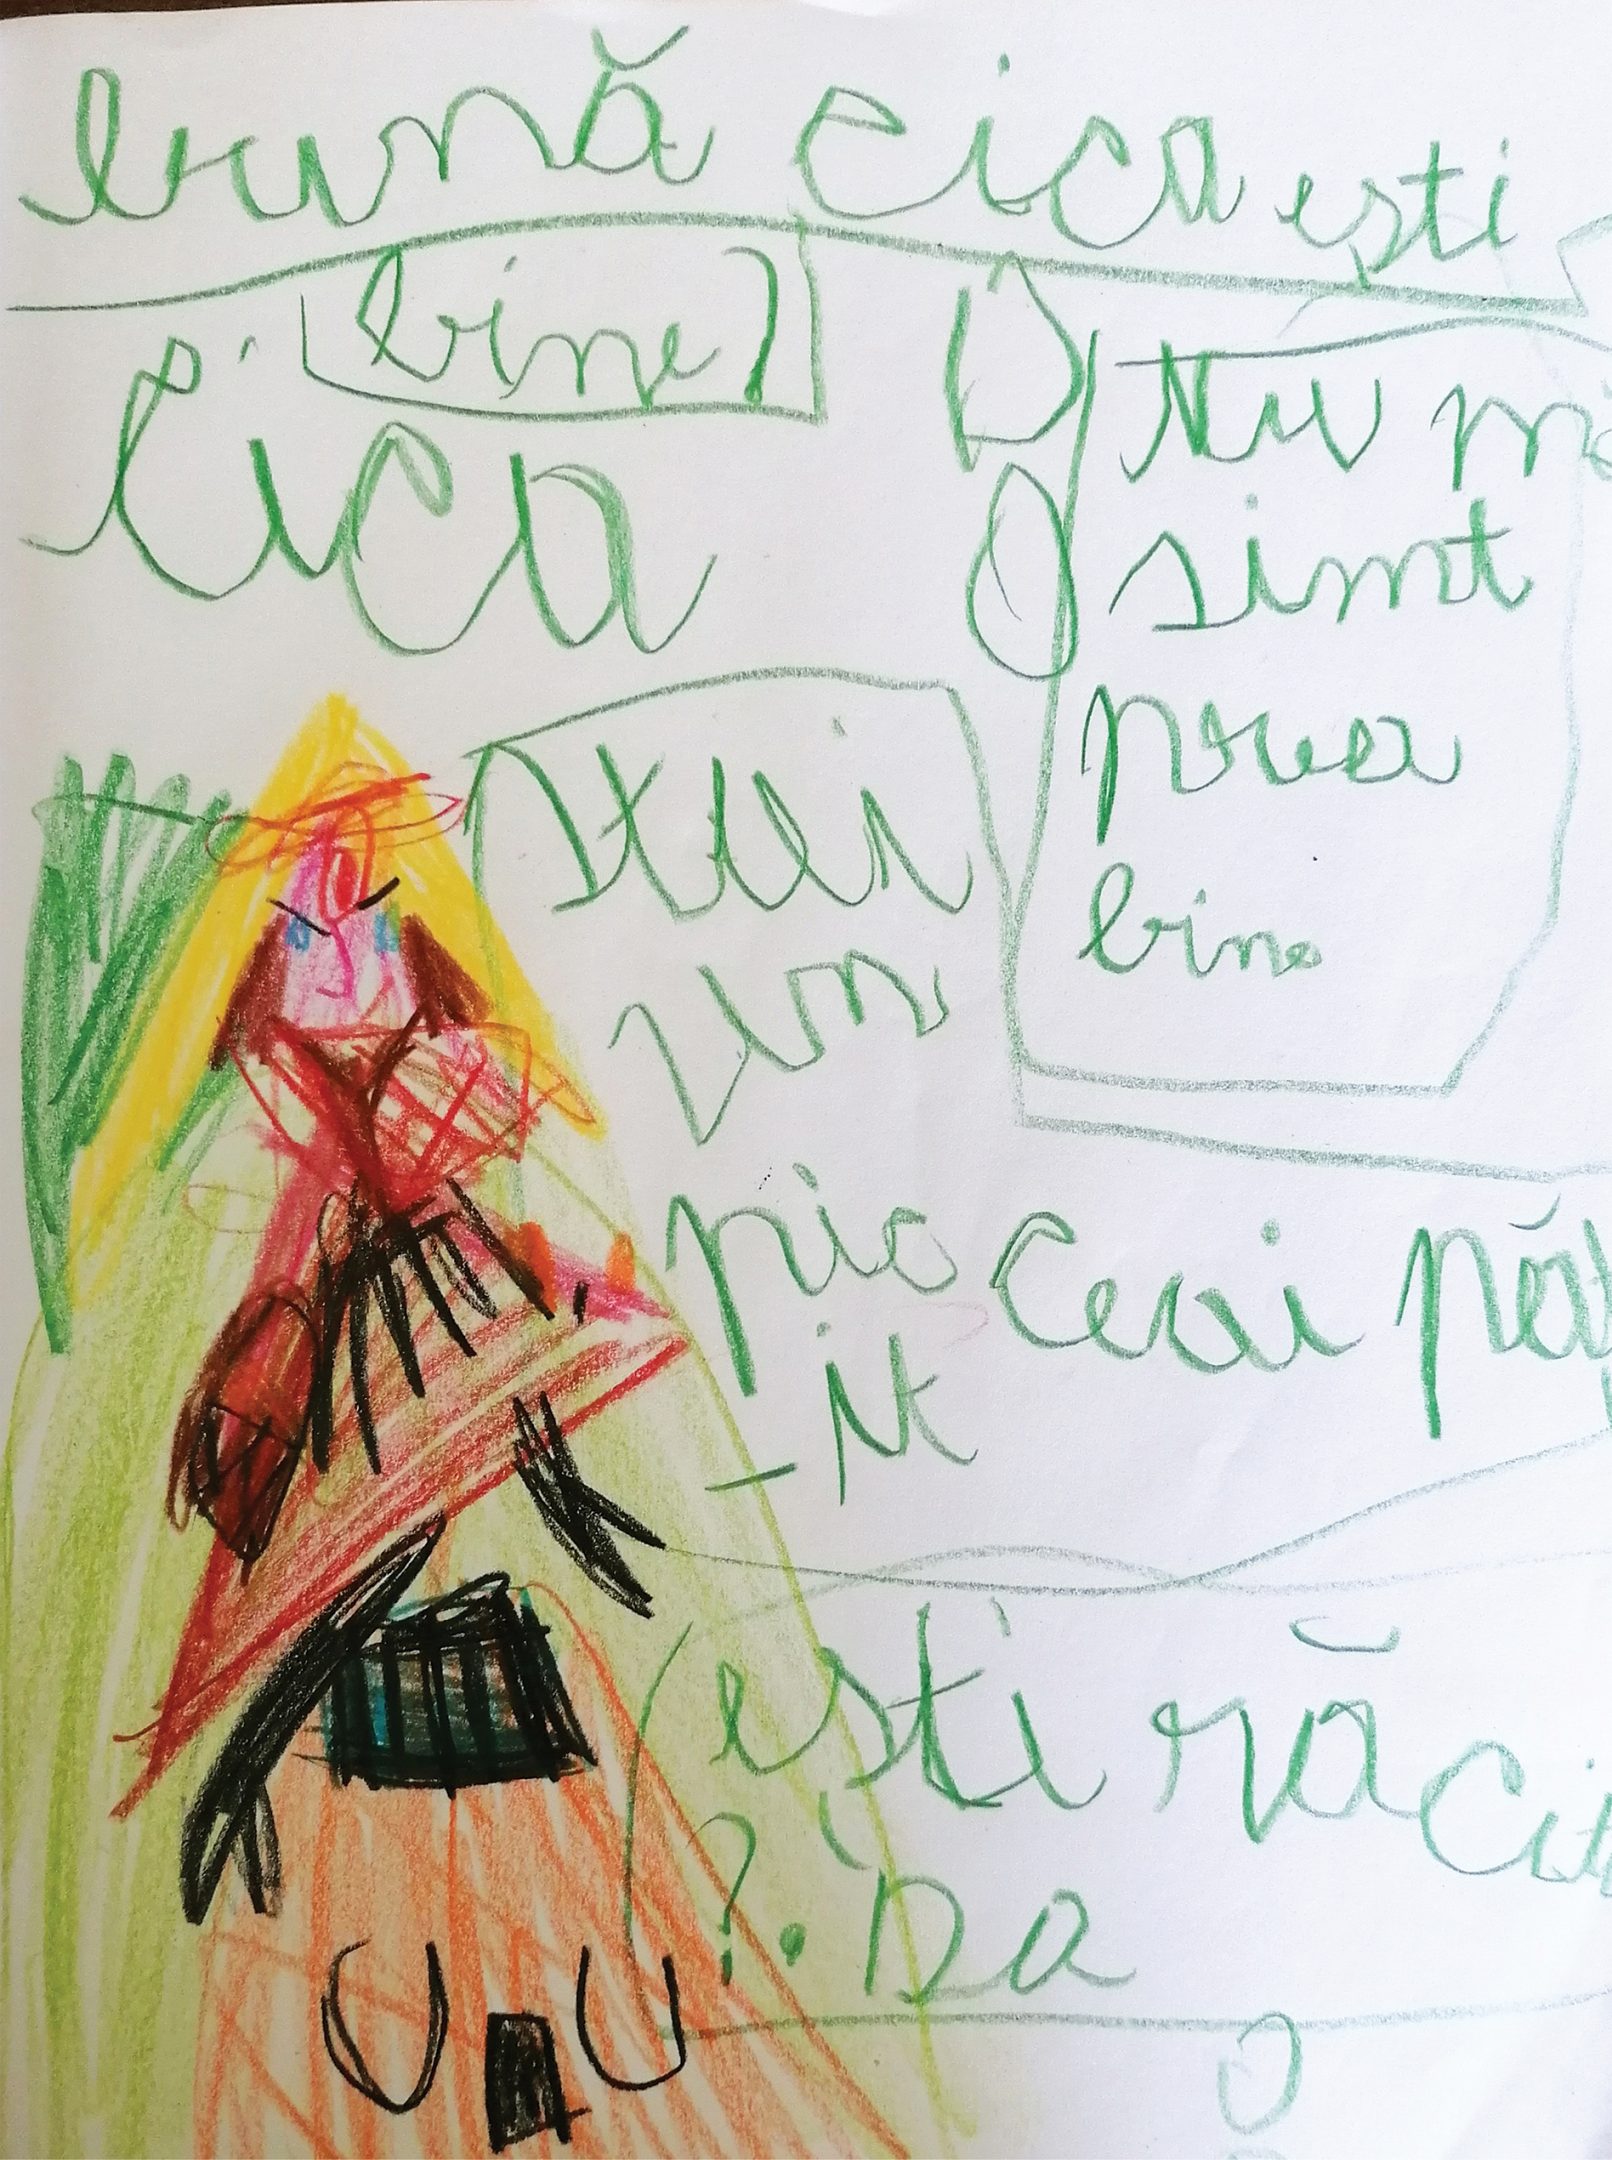 bună cica ești
bine?
Cica
Nu mă
simt
prea
bine
Stai
un
pic Ceai
-it
ești răcit
?. Da